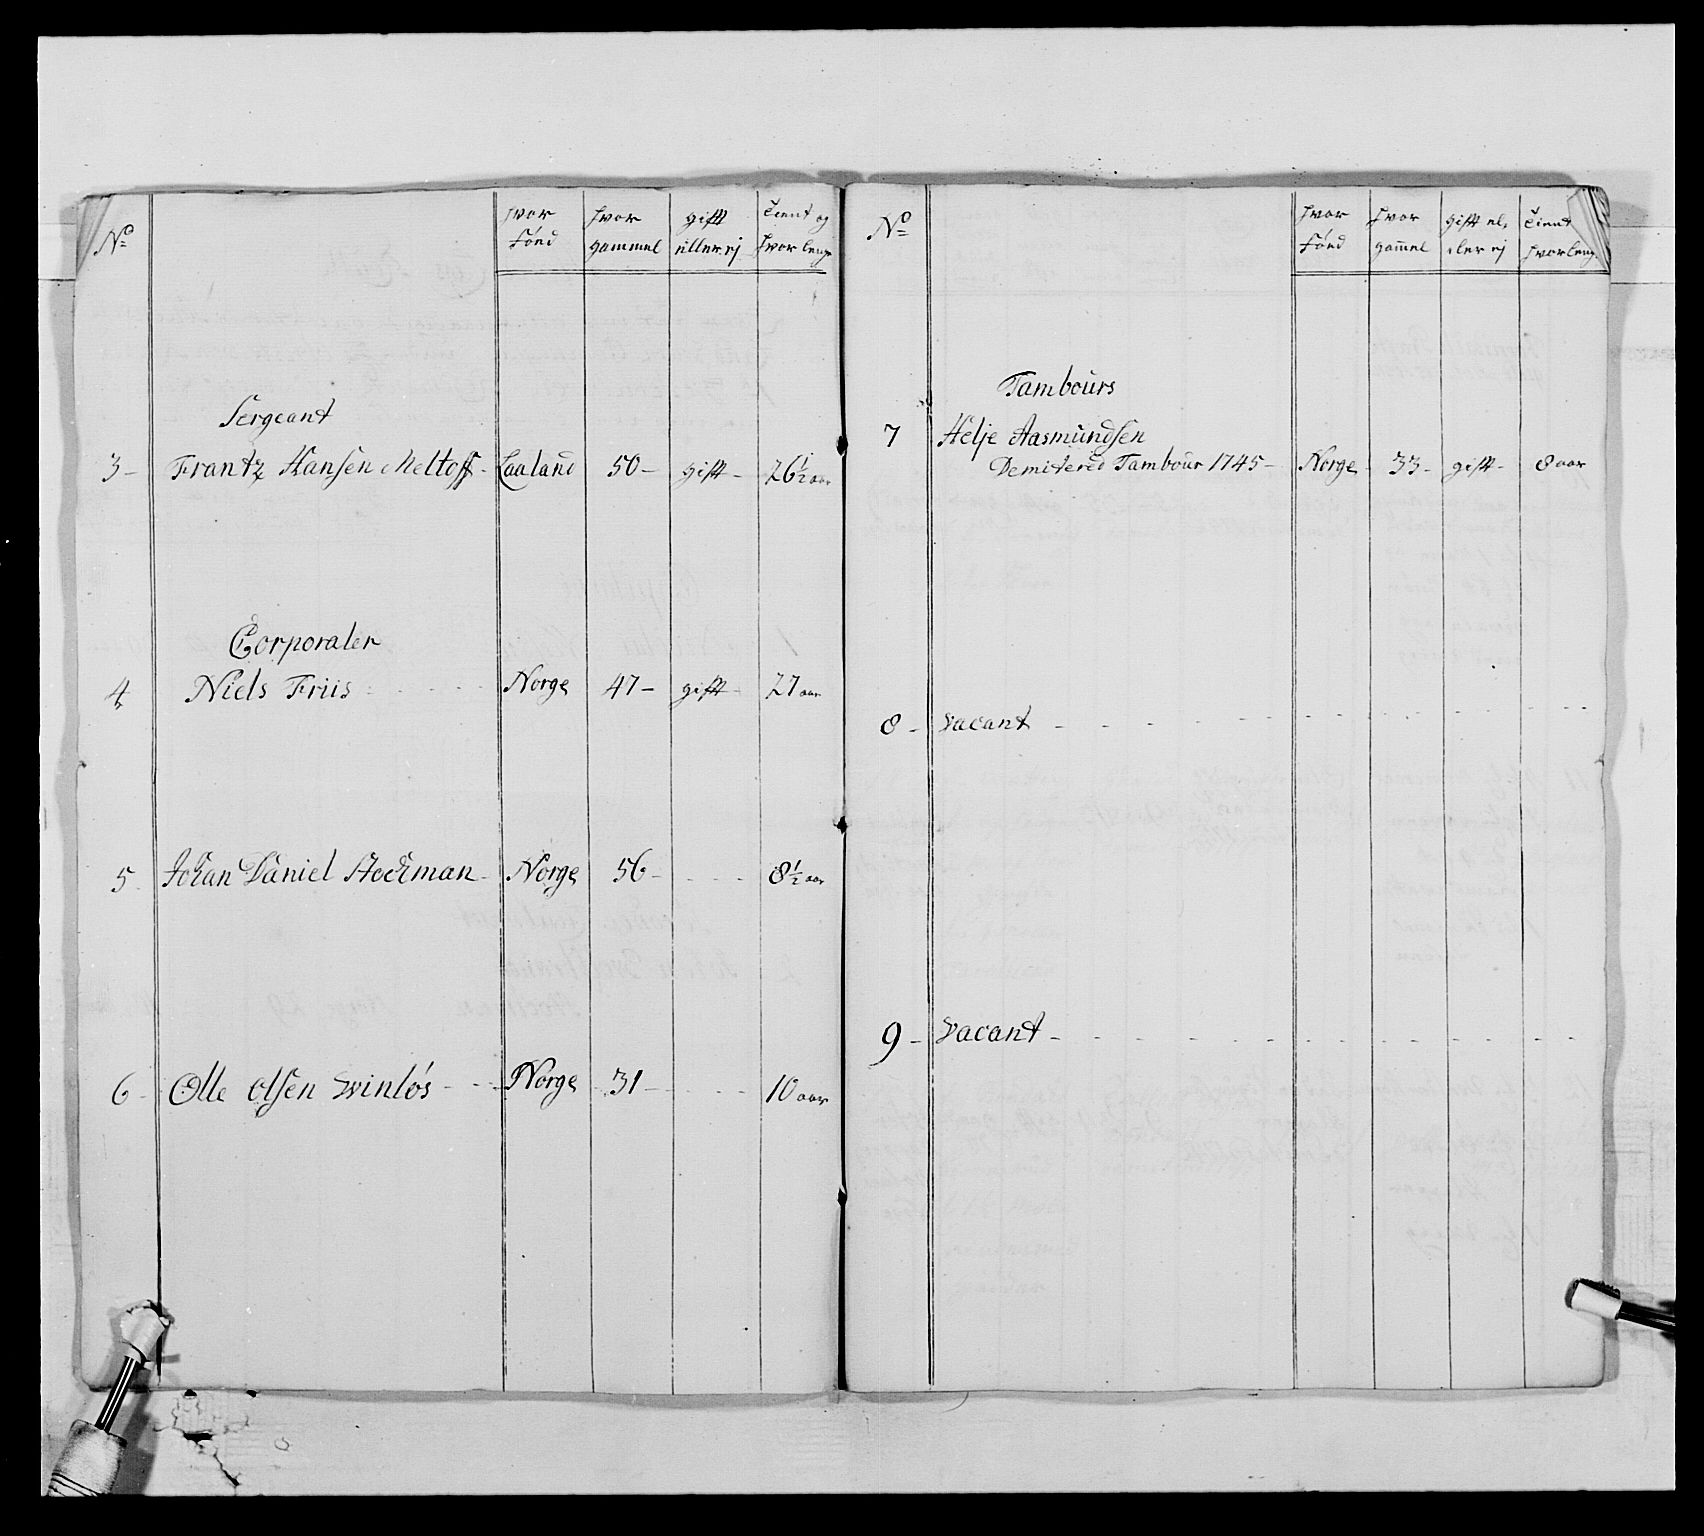 No
hvor
född
hvor
gammel
gifft
eller ej
tient og
hvor lenge
Sergeant
3 - Frantz Hansen Meltoff - Laaland 50 - gifft - 26½ aar
Corporaler
4 Niels Friis - - - - Norge 47 - gifft - 27 aar
5 - Johan Daniel Stockman - Norge 56 - - - - 8½ aar
6 - Olle Olsen Svinlös - - - Norge 31 - - - 10 aar
No
hvor
född
hvor
gam̄el
gifft el,
eler ej
tient
hvorleng
Tambours
7 Helje Aasmundsen
Demitered Tambour 1745 - Norge 33 - gifft - 8 aar
8 - vacant - - - - - - - - - - - -
9 - vacant - - - - - - - - - - - -